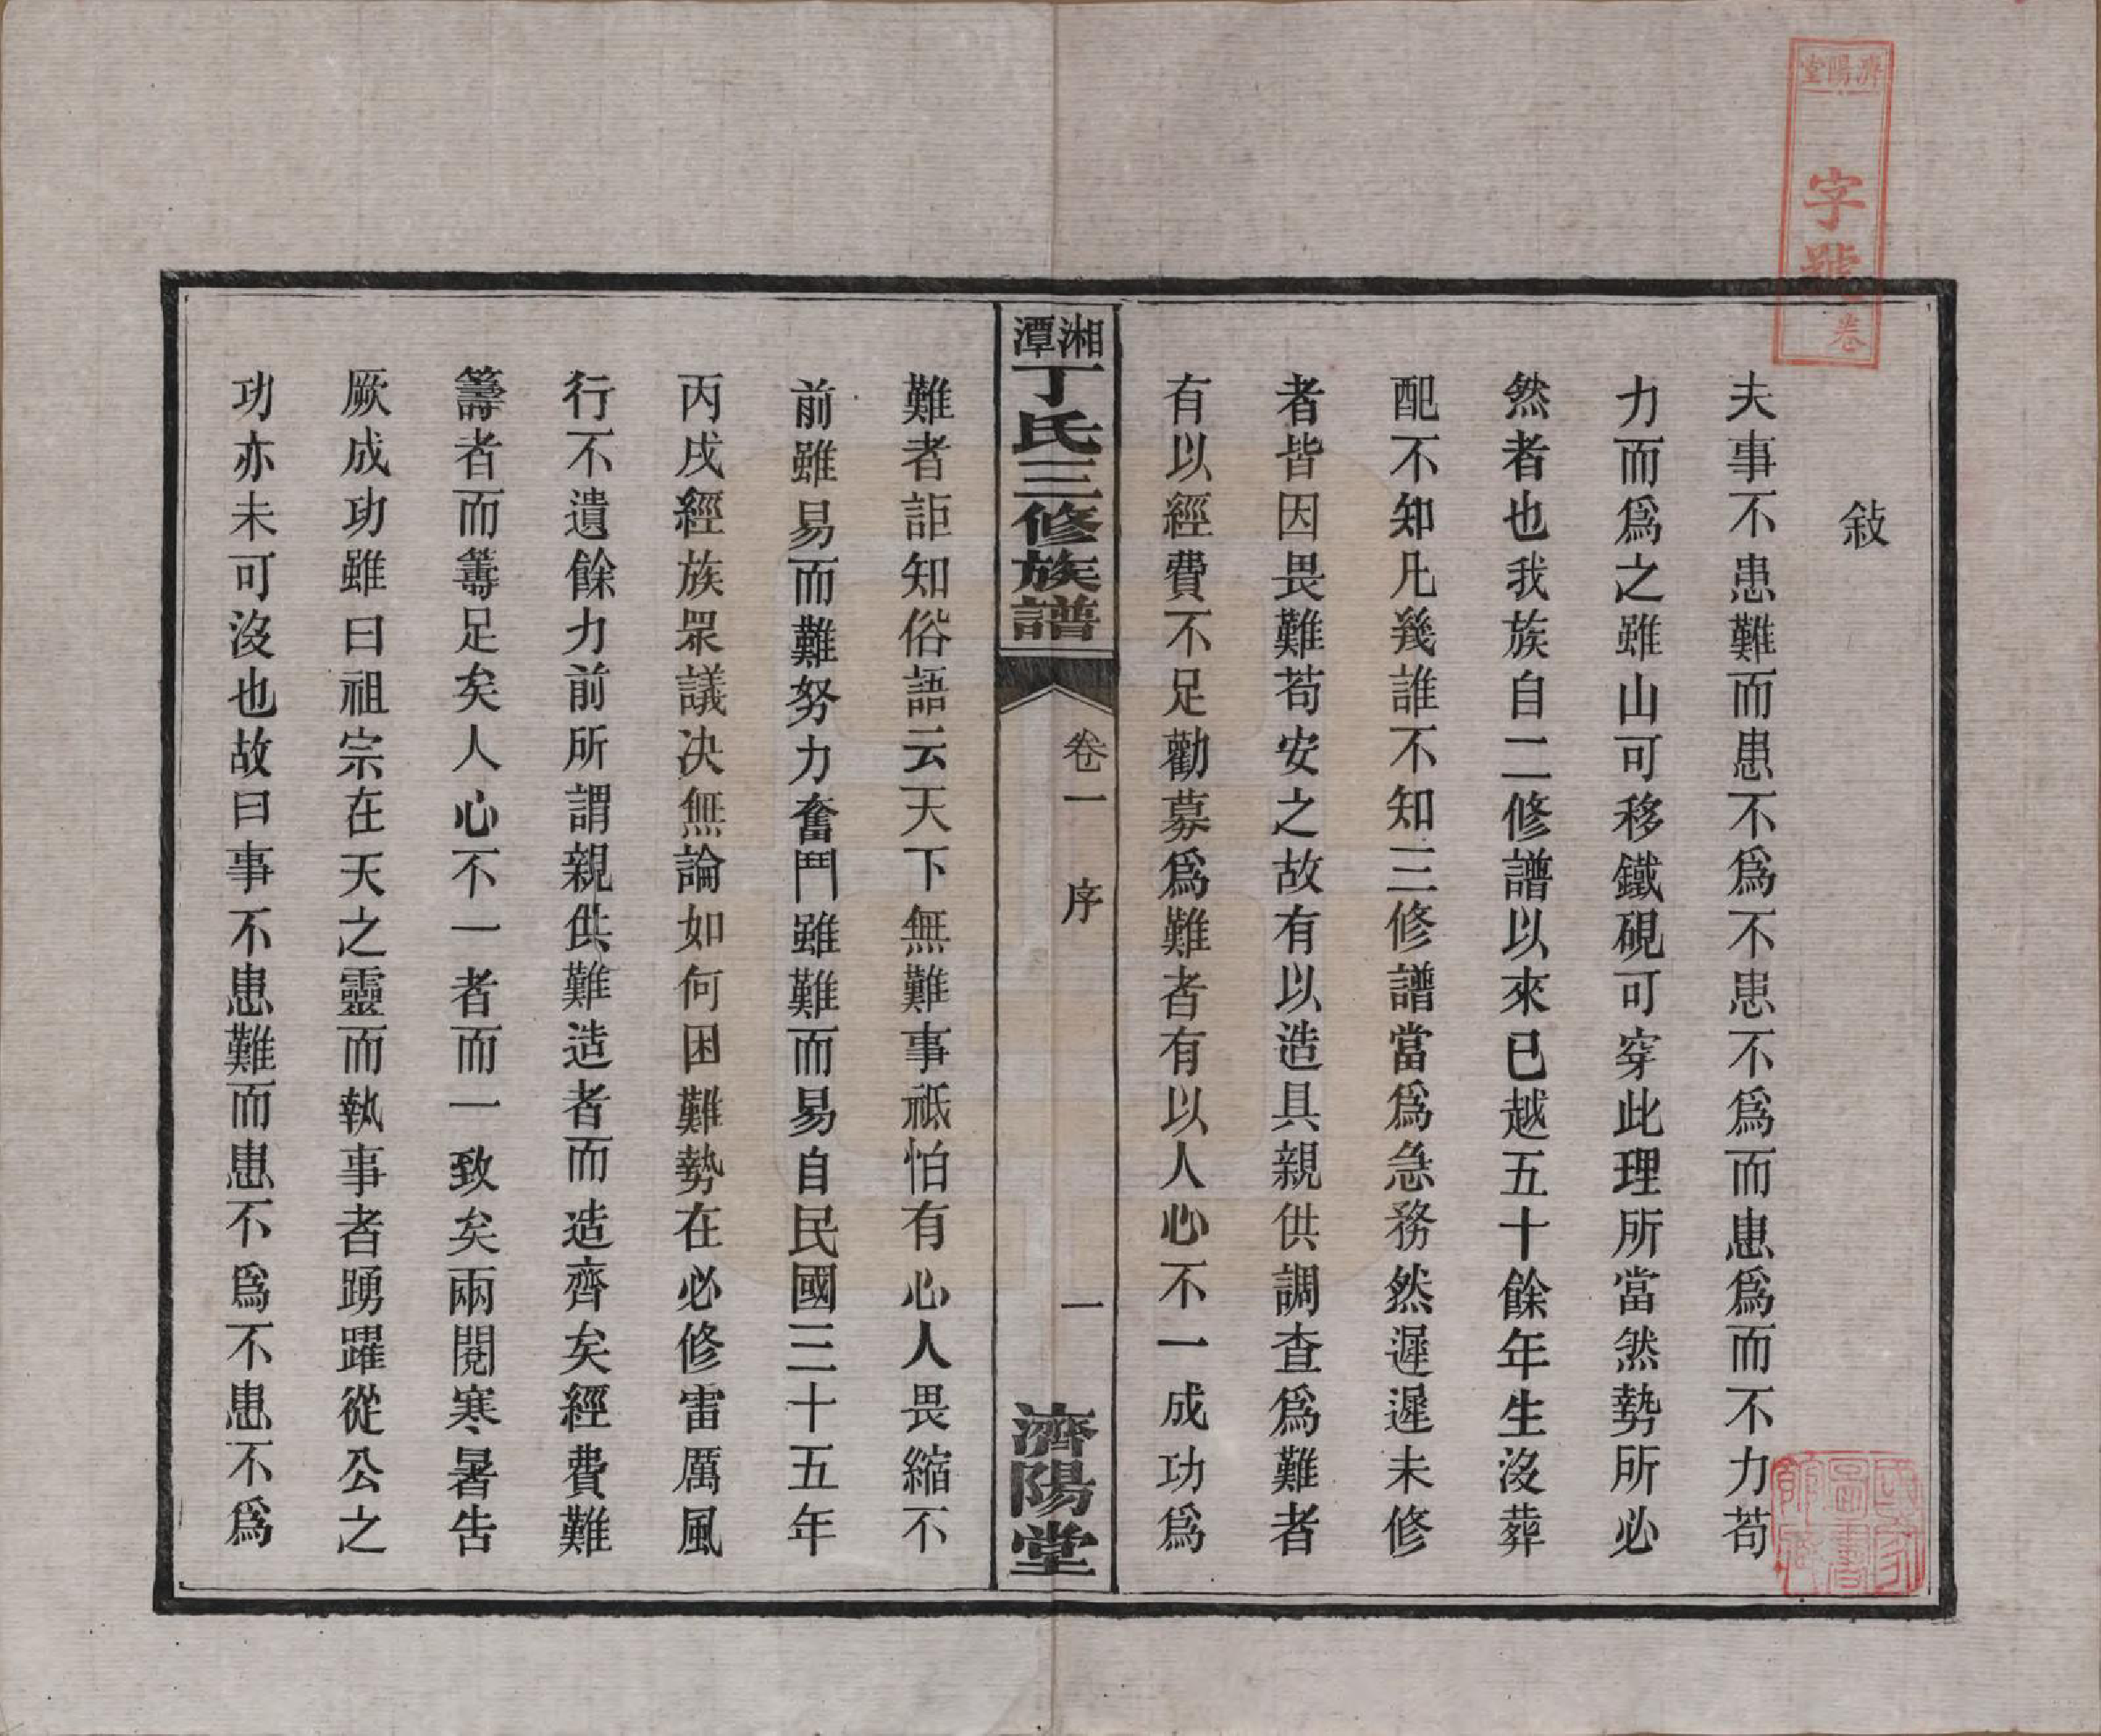 敍
夫事不患難而患不爲不患不爲而患爲而不力苟
力而爲之雖山可移鐵硯可穿此理所當然勢所必
然者也我族自二修譜以來已越五十餘年生沒葬
配不知凡幾誰不知三修譜當爲急務然遲遲未修
者皆因畏難苟安之故有以造具親供調查爲難者
有以經費不足勸募爲難者有以人心不一成功爲
湘潭丁氏三修族譜
卷一 序 一
濟陽堂
難者詎知俗語云天下無難事祗怕有心人畏縮不
前雖易而難努力奮鬥雖難而易自民國三十五年
丙戌經族眾議决無論如何困難勢在必修雷厲風
行不遺餘力前所謂親供難造者而造齊矣經費難
籌者而籌足矣人心不一者而一致矣兩閱寒暑告
厥成功雖曰祖宗在天之靈而執事者踴躍從公之
功亦未可沒也故曰事不患難而患不爲不患不爲
濟陽堂
字號
卷
國家圖書館藏